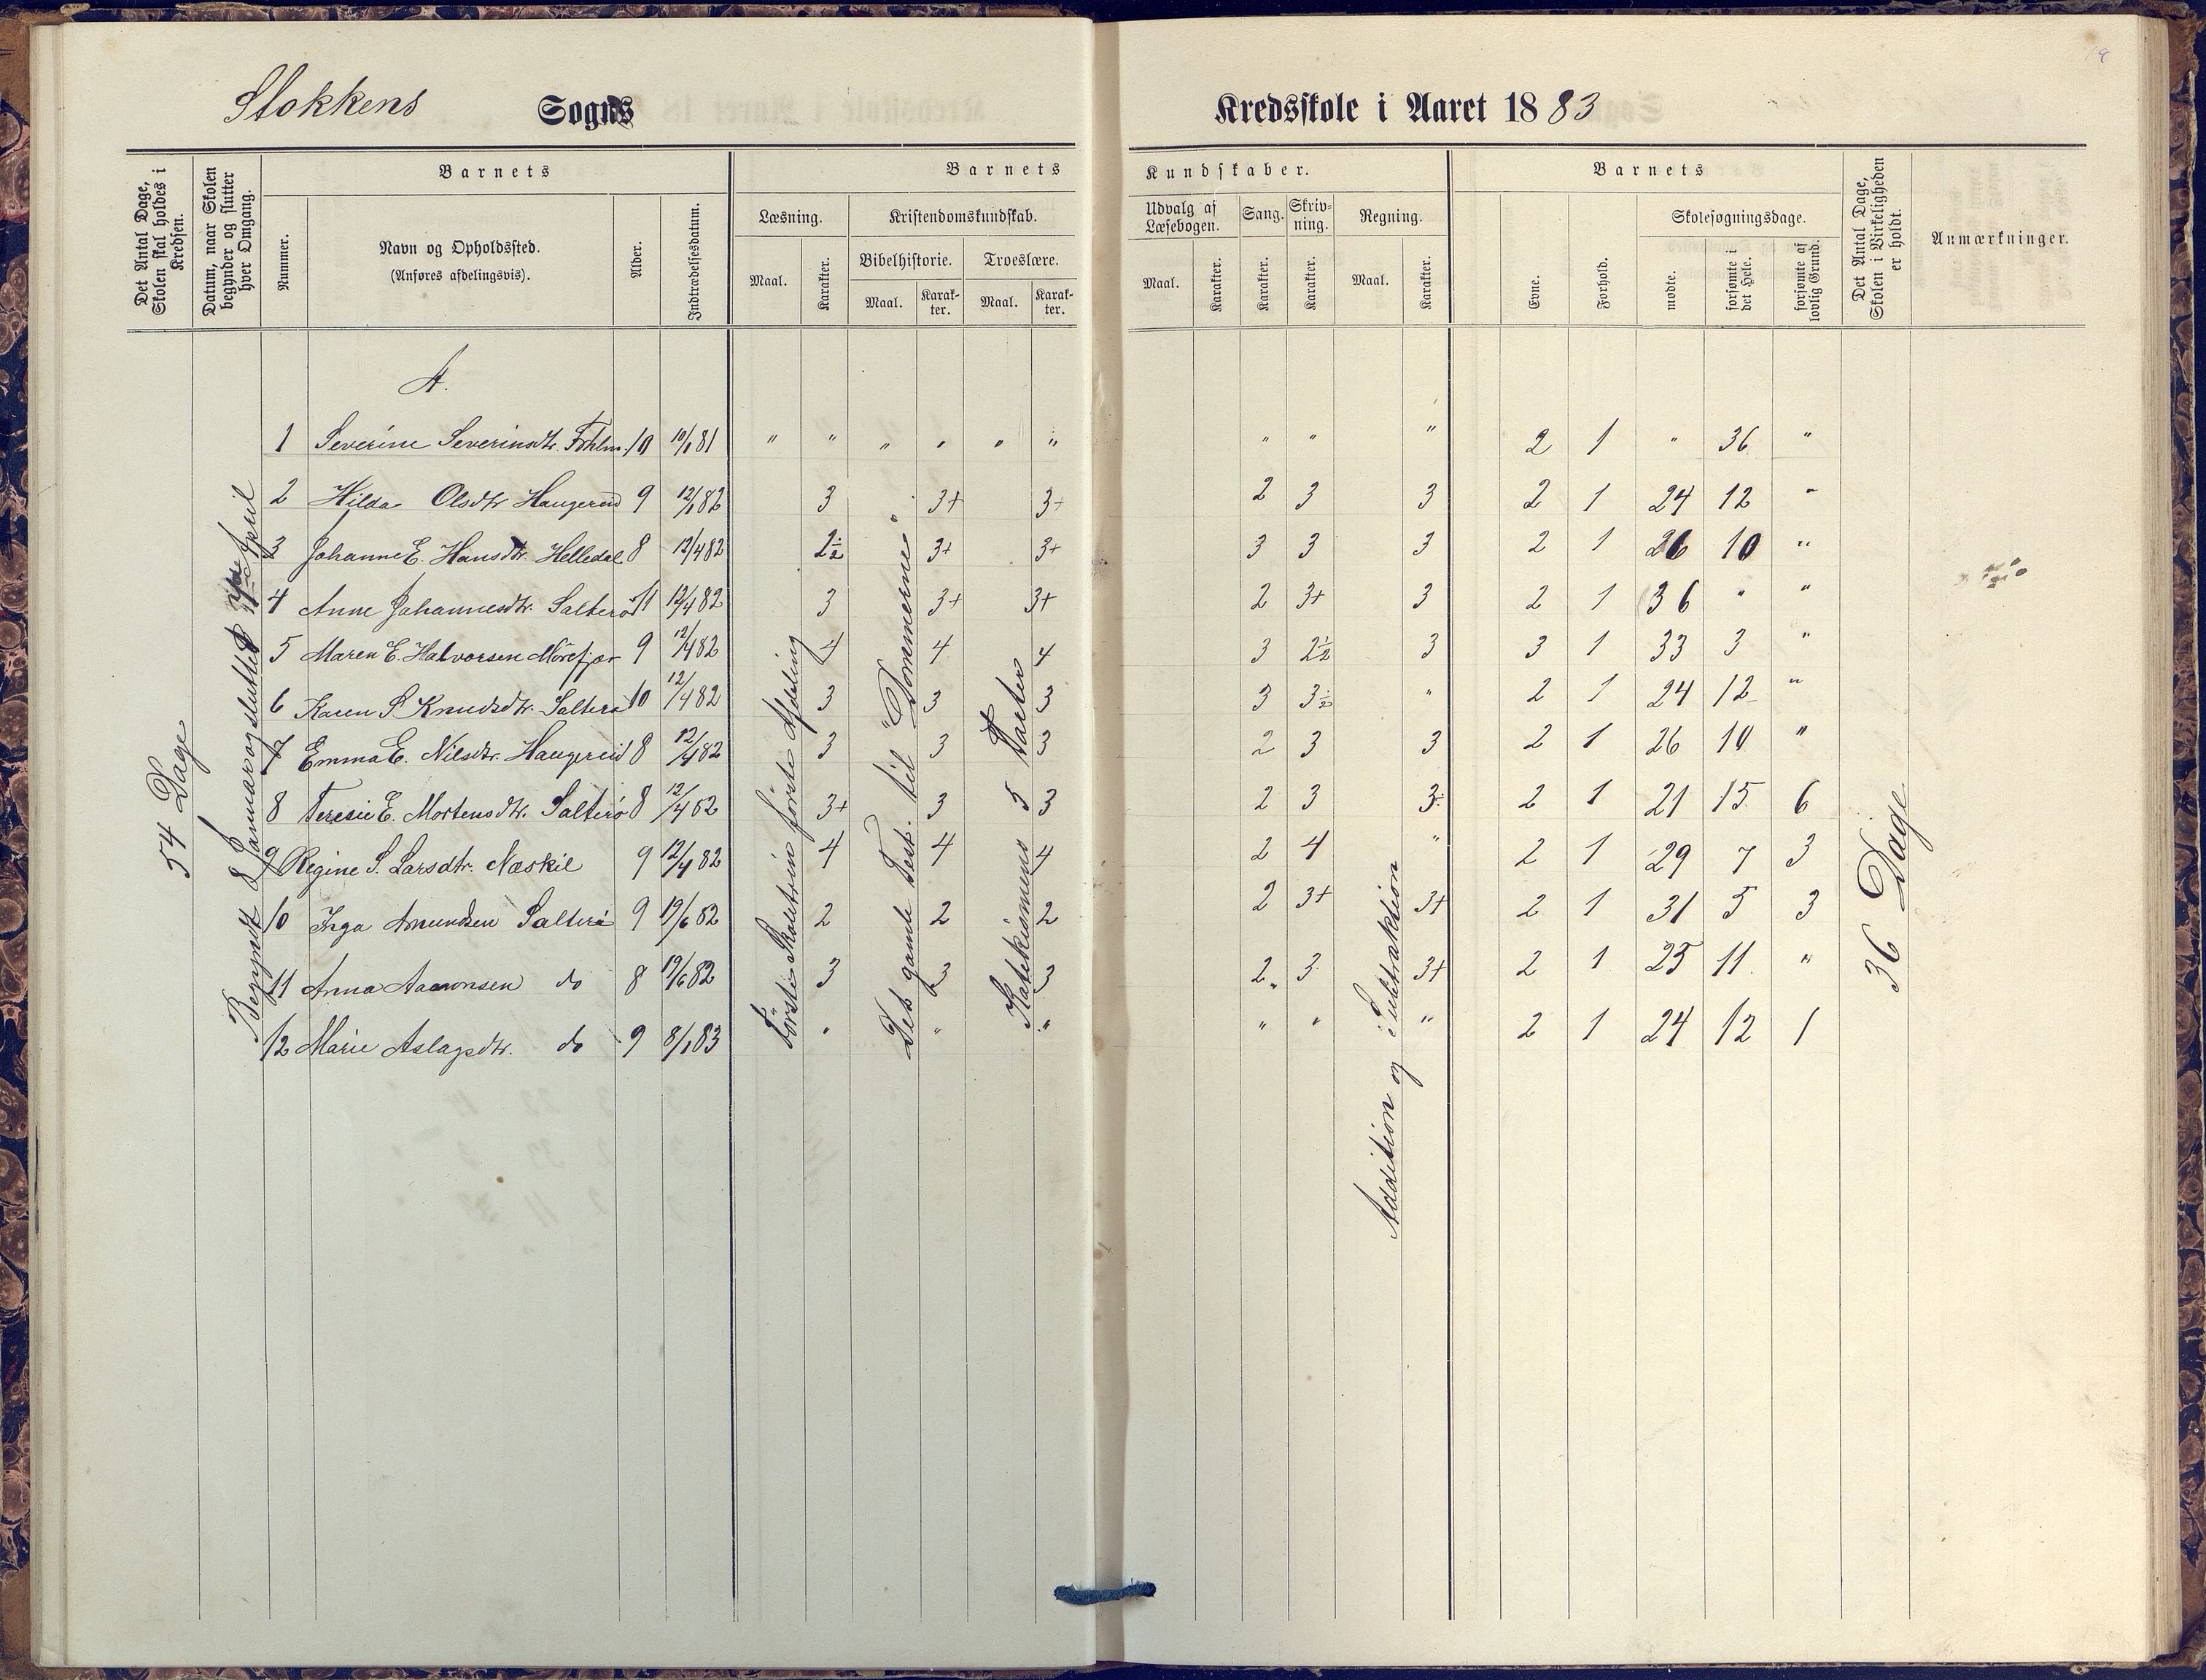 Stokkens Sogns Kredsskole i Aaret 1883
Det Antal Dage, Skolen skal holdes i Kredsen.
Datum, naar Skolen begynder og slutter hver Omgang.
Barnets
Nummer.
Navn og Opholdssted.
(Anføres afdelingsvis).
Alder.
Indtrædelsesdatum.
Barnets Kundskaber.
Læsning.
Maal. Karakter.
Kristendomskundskab.
Bibelhistorie. Troeslære.
Maal. Karakter. Maal. Karakter.
Udvalg af Læsebogen.
Maal. Karakter.
Sang. Karakter.
Skrivning. Karakter.
Regning.
Maal. Karakter.
Barnets
Evne. Forhold.
Skolesøgningsdage.
mødte. forsømte i det Hele. forsømte af lovlig Grund.
Det Antal Dage, Skolen i Virkeligheden er holdt.
Anmærkninger.
54 Dage
Begyndt 8 Januar og sluttet April
A.
1 Severine Severinsdtr. 10 10/1 81 " " " " " " " " " 2 1 " 36 "
2 Hilda Olsdtr Haugereid 9 12/1 82 3 3+ 3+ 2 3 3 2 1 24 12 "
3 Johanne E. Hansdtr. Helledal 8 12/4 82 2½ 3+ 3+ 3 3 3 2 1 26 10 "
4 Anne Johannesdtr. Salterø 11 12/4 82 3 3+ 3+ 2 3+ 3 2 1 36 " "
5 Maren E. Halvorsen Mörefjær 9 12/4 82 4 4 4 3 2½ 3 3 1 33 3 "
6 Karen S Knudsdtr. Salterø 10 12/4 82 3 3 3 3 3½ " 2 1 24 12 "
7 Emma E. Nilsdtr. Haugereid 8 12/4 82 3 3 3 2 3 3 2 1 26 10 "
8 Teresie E. Mortensdtr. Salterø 8 12/4 82 3+ 3 3 2 3 3 2 1 21 15 6
9 Regine S. Larsdtr. Næskil 9 12/4 82 4 4 4 2 4 " 2 1 29 7 3
10 Inga Amundsen Salterø 9 19/6 82 2 2 2 2 3+ 3+ 2 1 31 5 3
11 Anna Aaronsen do 8 19/6 82 3 3 3 2 3 3+ 2 1 25 11 "
12 Marie Aslagsdtr. do 9 8/1 83 " " " " " " 2 1 24 12 1
Første Skoletrin første Afdeling
Det gamle Test. til "Dommerne"
Katekismens 5 Parter
Addition og Subtraktion
36 Dage